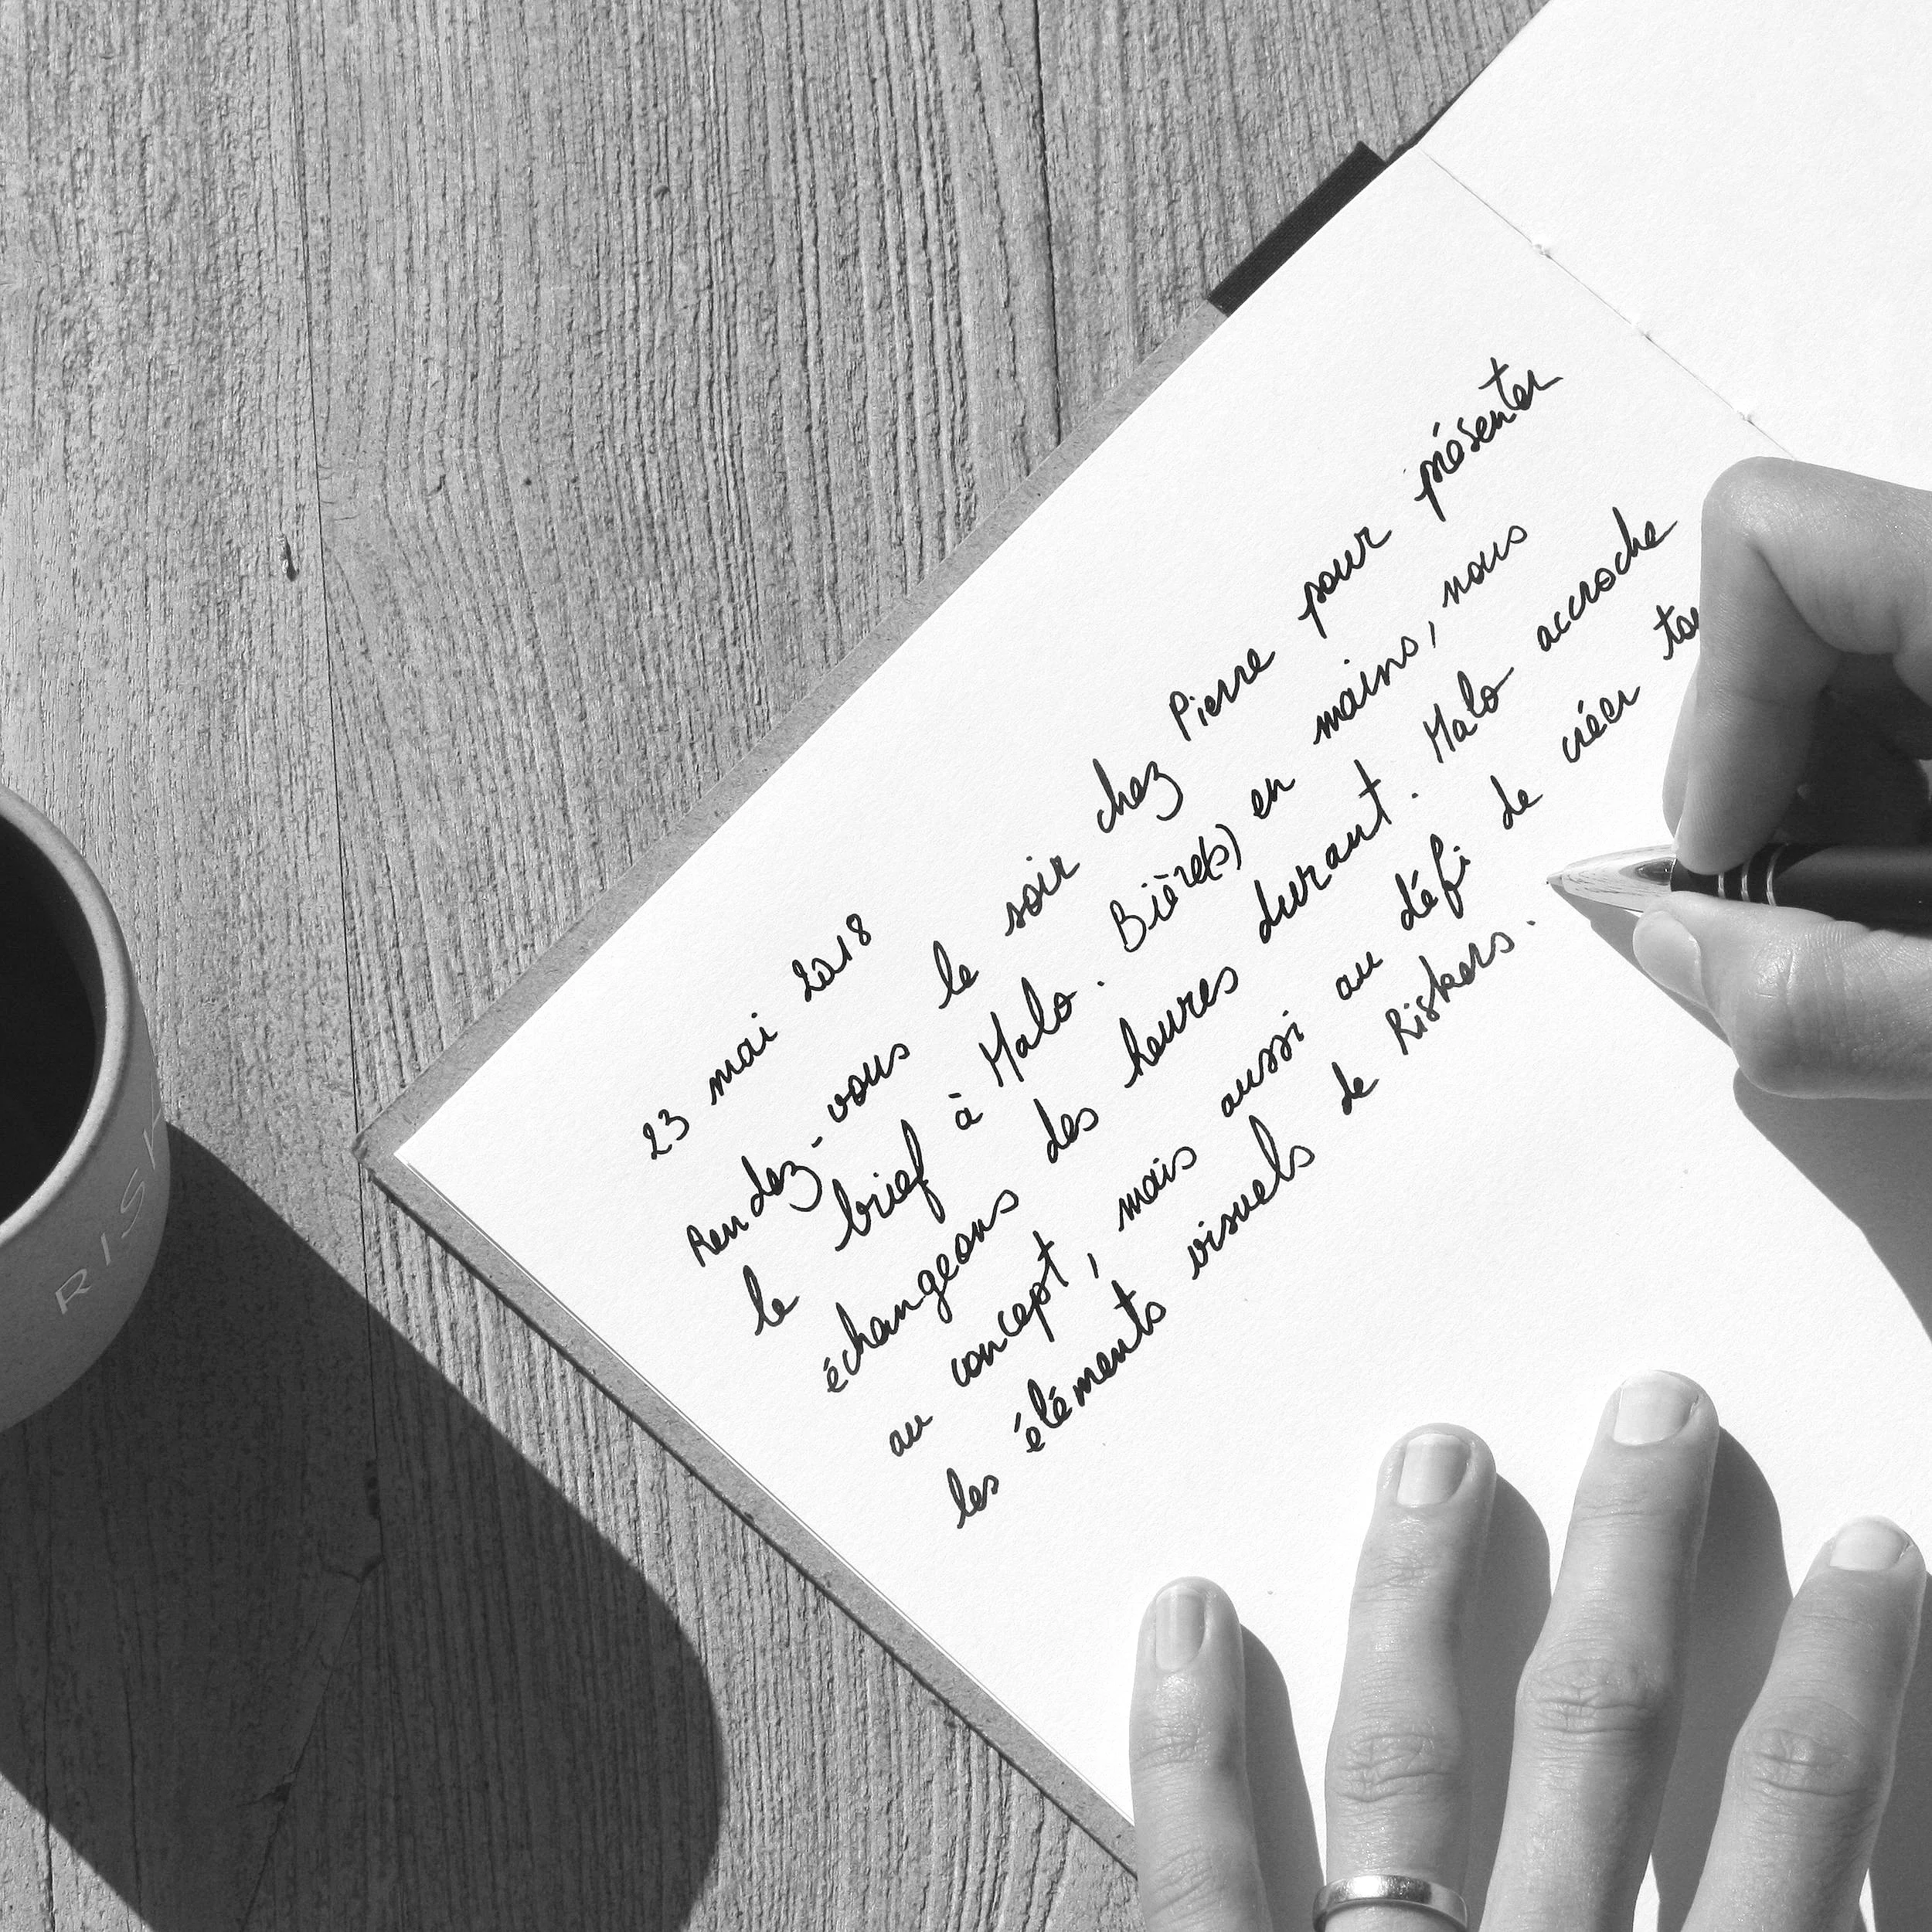 23 mai 2018
Rendez-vous le soir chez Pierre pour présenter
le brief à Malo. Bière(s) en mains, nous
échangeons des heures durant. Malo accroche
au concept, mais aussi au défi de créer
les éléments visuels de Riskers.
RISK